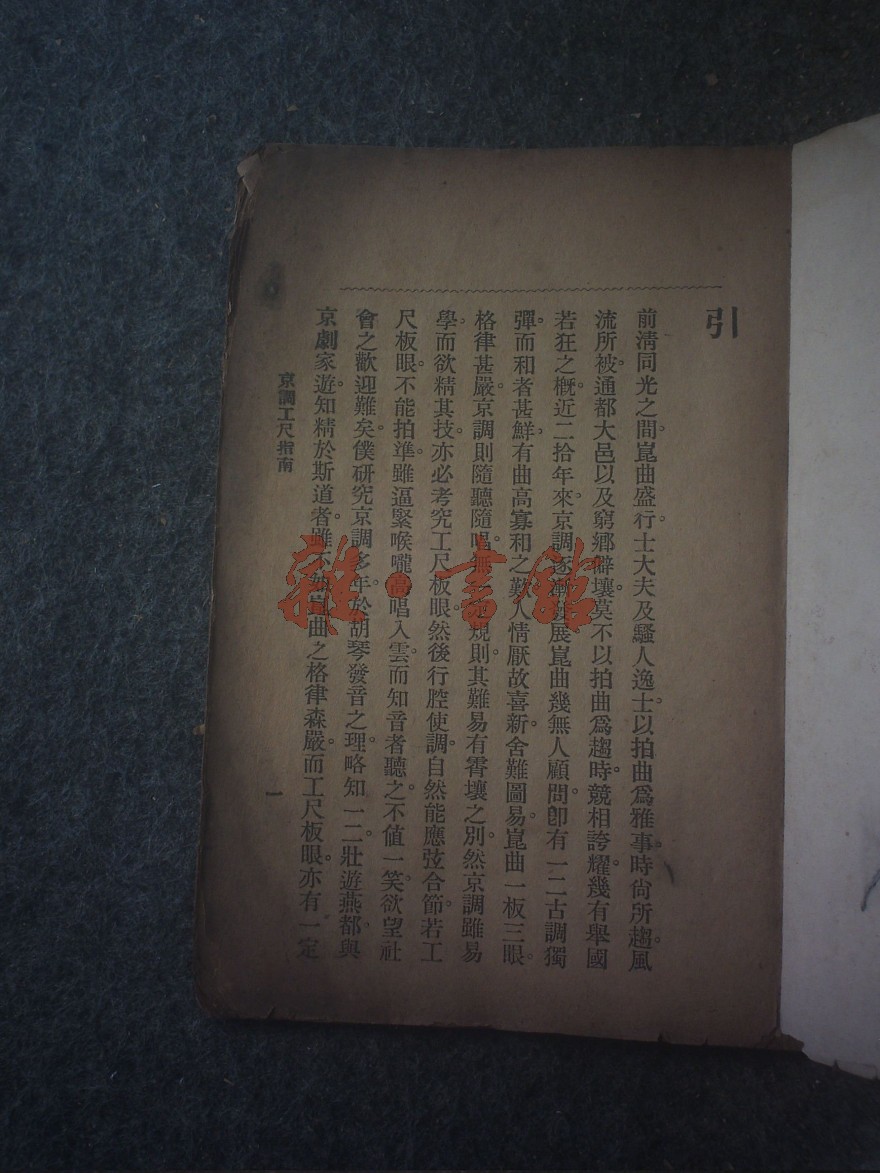 引
前淸同光之間崑曲盛行。士大夫及騷人逸士。以拍曲爲雅事。時尙所趨。風
流所被。通都大邑。以及窮鄉僻壤。莫不以拍曲爲趨時。競相誇耀。幾有舉國
若狂之槪。近二拾年來。京調逐漸發展。崑曲幾無人顧問。卽有一二古調獨
彈。而和者甚鮮。有曲高寡和之歎。人情厭故喜新。舍難圖易。崑曲一板三眼。
格律甚嚴。京調則隨聽隨唱。無規則。其難易有霄壤之別。然京調雖易
學。而欲精其技。亦必考究工尺板眼。然後行腔使調。自然能應弦合節。若工
尺板眼。不能拍準。雖逼緊喉嚨。高唱入雲。而知音者聽之。不値一笑。欲望社
會之歡迎難矣。僕硏究京調多年。於胡琴發音之理。略知一二。壯遊燕都。與
京劇家遊。知精於斯道者。雖不如崑曲之格律森嚴。而工尺板眼。亦有一定
京調工尺指南
一
雜·書館